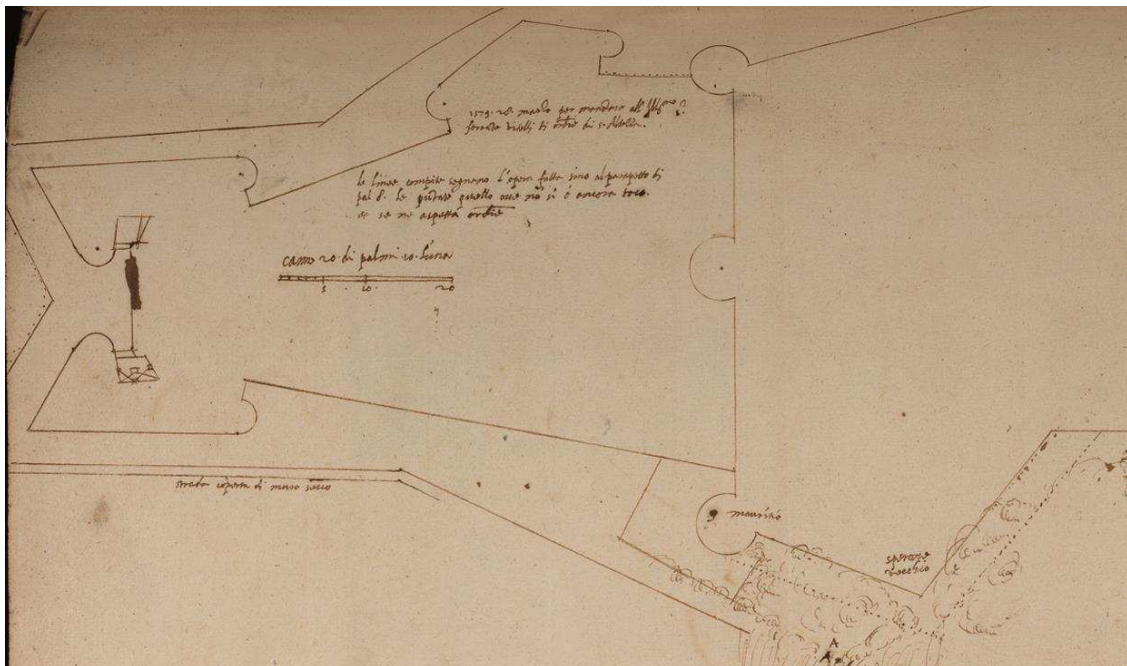 1579. 28. marzo per mandare all'Ill.mo S.
ferrante vitelli di ordine di s. Altezza.
le linee compite segnano l'opera fatta sino al parapetto di
pal 8. le pūtate quello oue nō si è ancora toco.
et se ne aspetta ordine
canne 20. di palmi 10. l'una
5 10 20
strada coperta di muro secco
S mauritio
sperone
vecchio
A
A